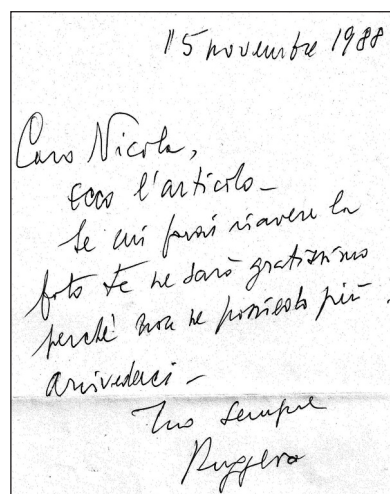 15 novembre 1988
Caro Nicola,
ecco l'articolo –
Se mi farai riavere la
foto te ne sarò gratissimo
perché non ne possiedo più.
Arrivederci –
Tuo sempre
Ruggero